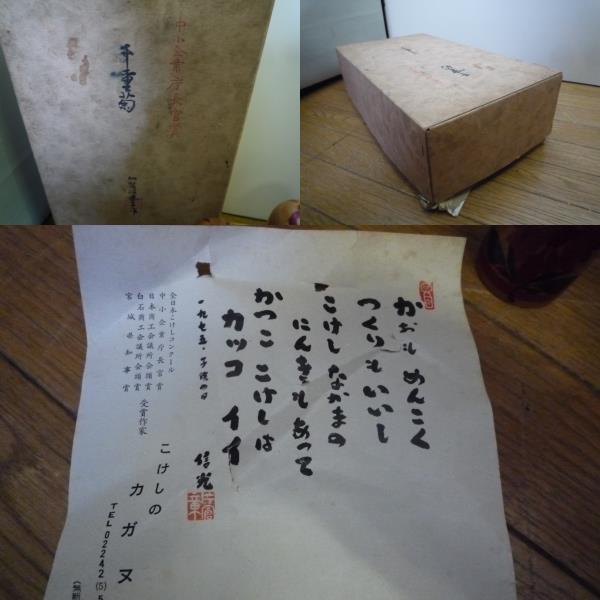 中小企業庁長官賞
千重菊
かおも めんこく
つくりも いいし
こけし なかまの
にんきも あって
かつこ こけしは
カッコ イイ
一九七五・子供の日
信光
全日本こけしコンクール
中小企業庁長官賞
日本商工会議所会頭賞
白石商工会議所会頭賞
宮城県知事賞
受賞作家
こけしの
カガヌ
TEL02242(5)5
(無断